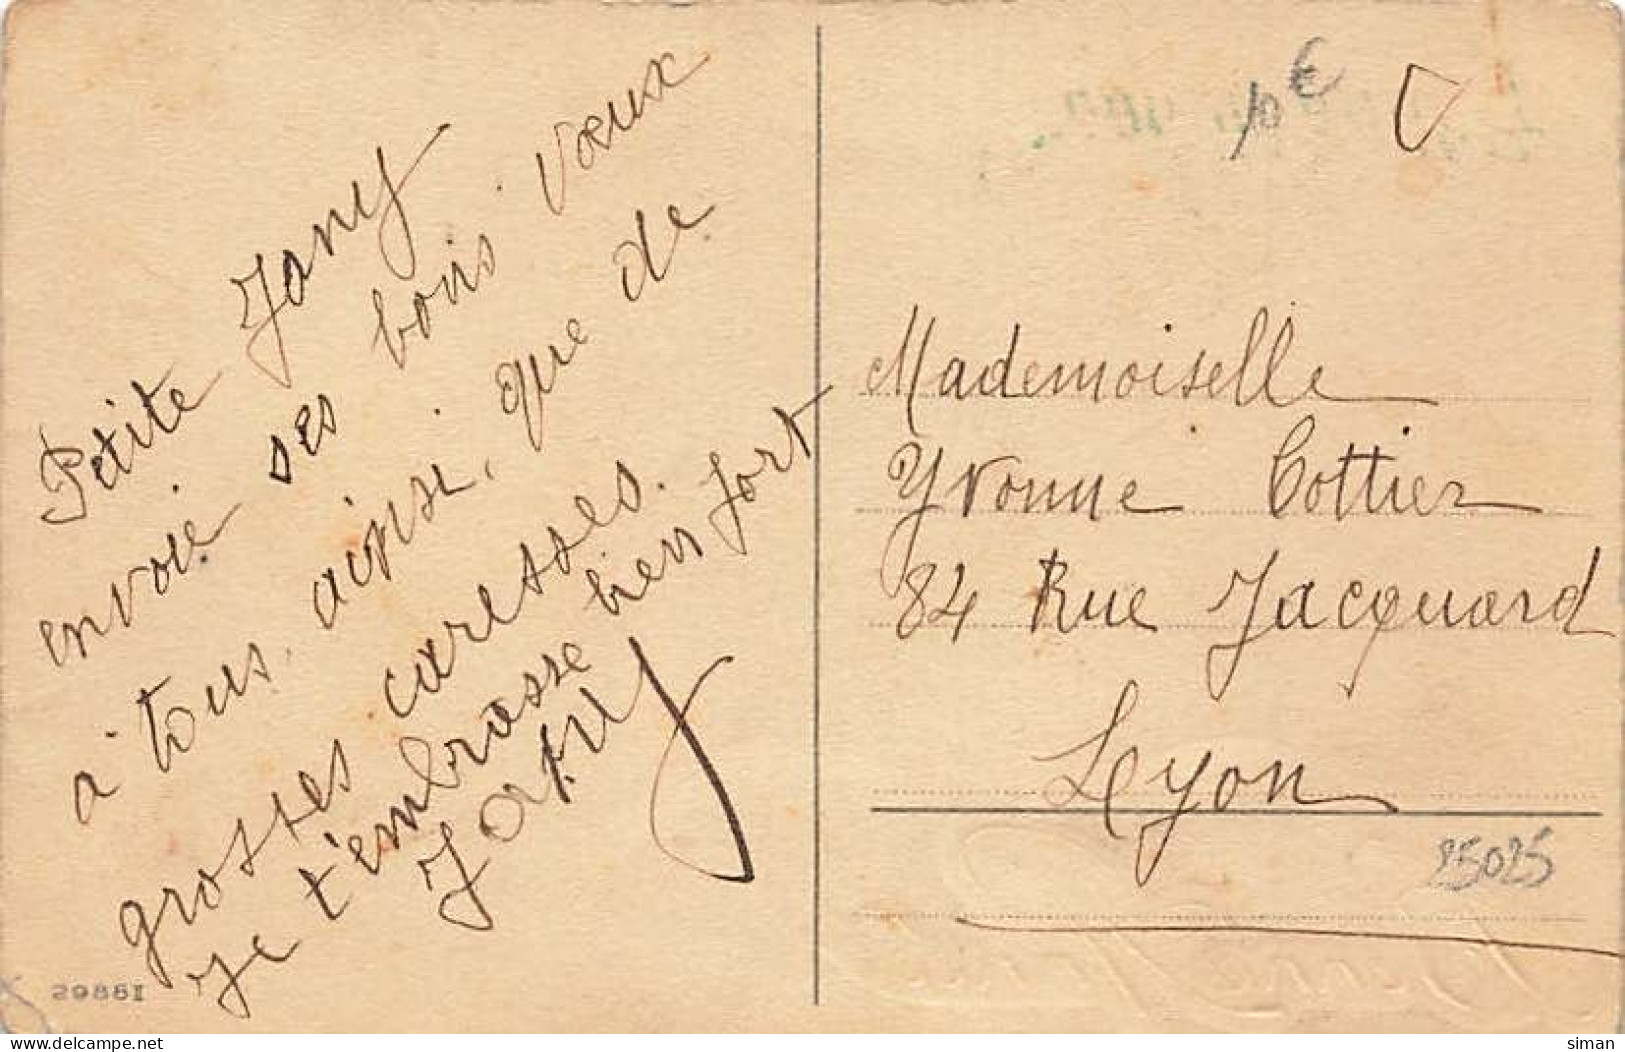 Petite Jany
envoie ses bons vœux
à tous, ainsi, que de
grosses caresses.
je t'embrasse bien fort
Jany
29881
10 €
Mademoiselle
Yvonne Cottier
84 Rue Jacquard
Lyon
25025
delcampe.net
siman